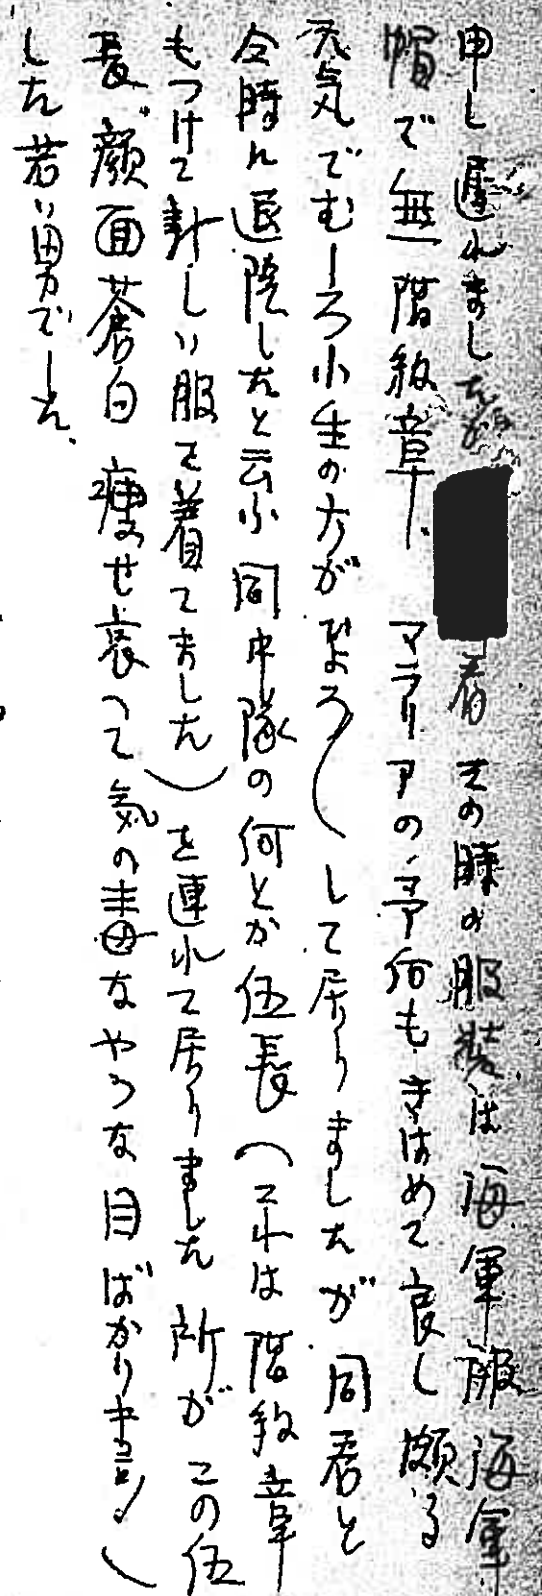 申し遅れましたが■君その時の服装は海軍服海軍
帽で無階級章、マラリアの予後もきはめて良し頗る
元気でむしろ小生の方がひょろ〳〵して居りましたが同君と
今時に退院したと云ふ同中隊の何とか伍長(これは階級章
もつけて新しい服を着てました)を連れて居りました所がこの伍
長、顔面蒼白痩せ衰へて気の毒なやうな目ばかりキョロ〳〵
した若い男でした、